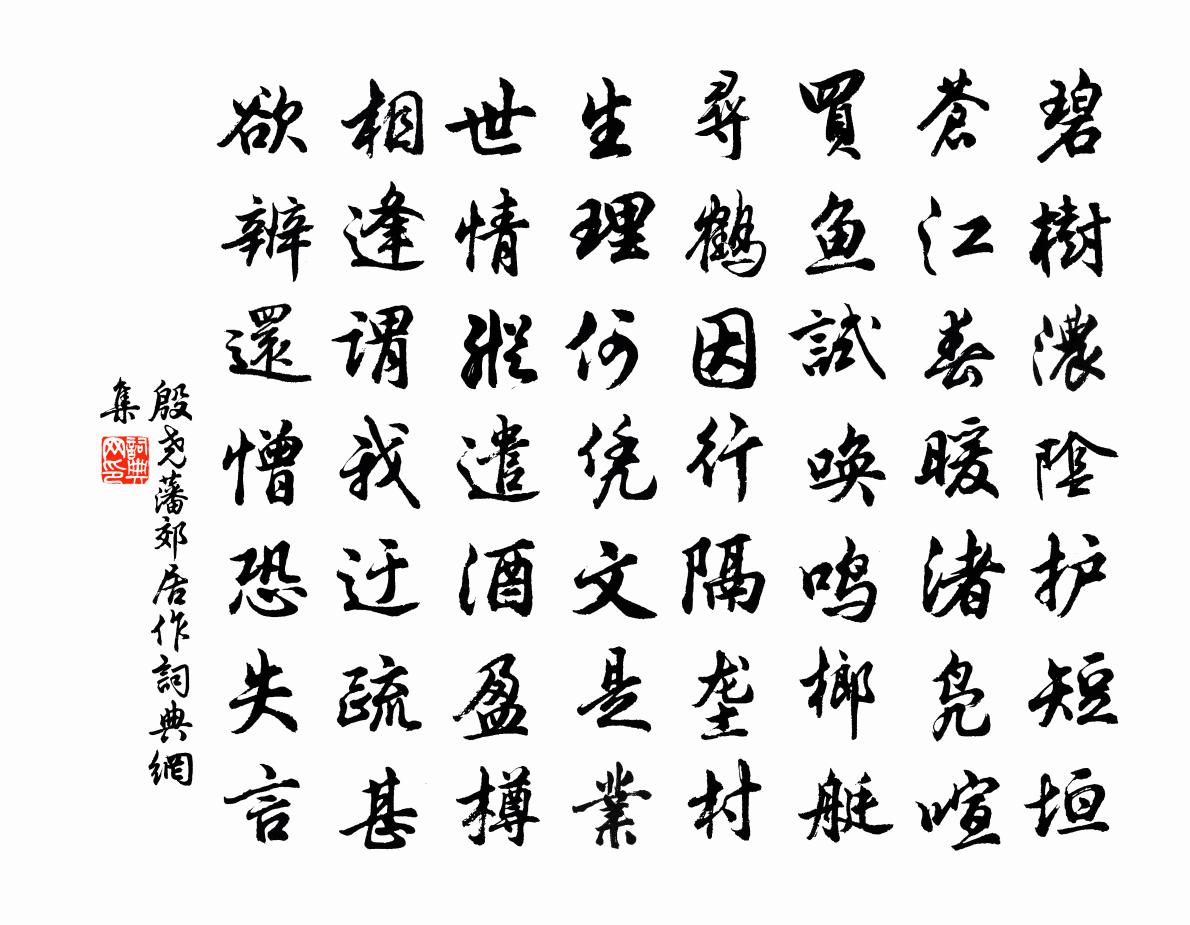 碧樹濃陰护短垣
蒼江春暖渚凫喧
買鱼試喚鸣榔艇
尋鶴因行隔垄村
生理何凭文是業
世情縱遣酒盈樽
相逢謂我迂疏甚
欲辨還憎恐失言
殷尧藩郊居作詞典網
集
詞典网印